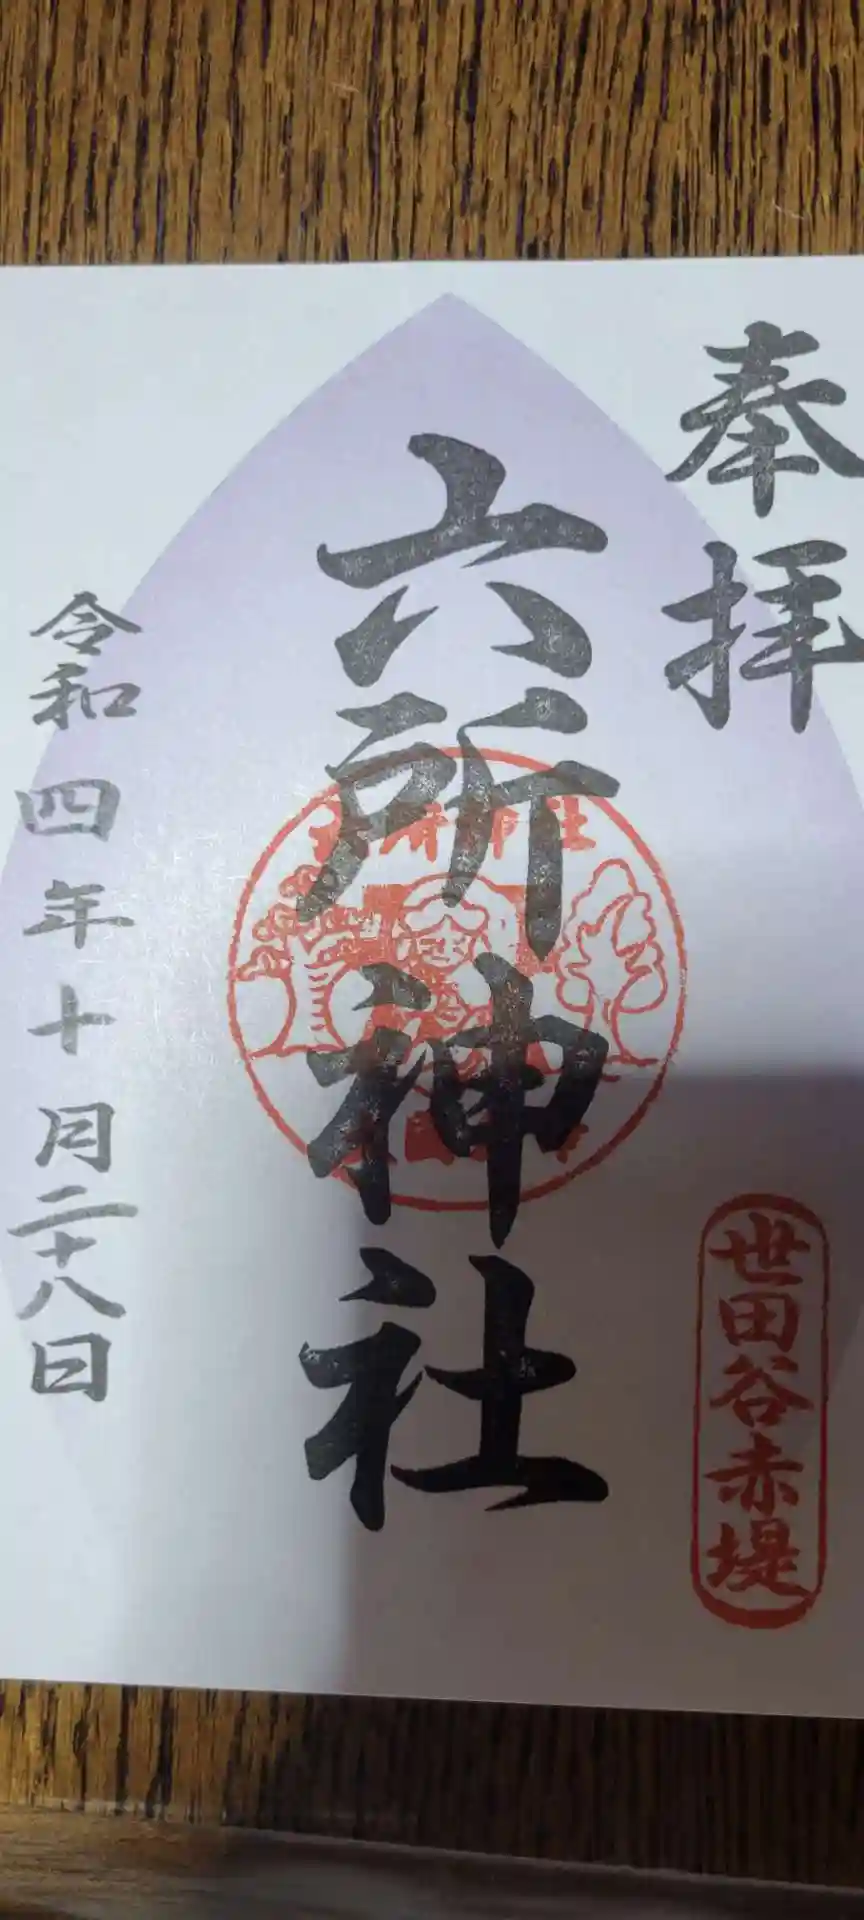 奉拝
世田谷赤堤
六所神社
令和四年十月二十八日